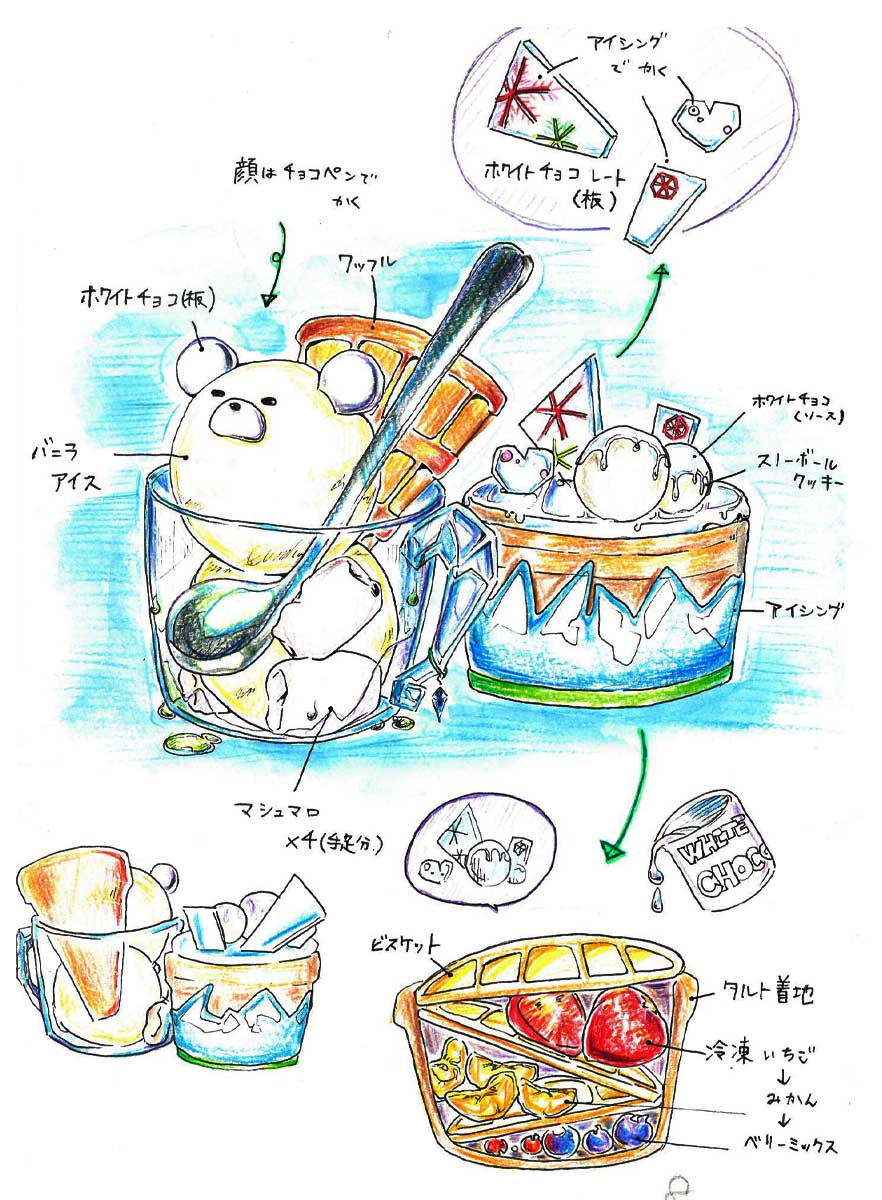 アイシング
でかく
ホワイトチョコレート
(板)
顔はチョコペンで
かく
ワッフル
ホワイトチョコ(板)
バニラ
アイス
ホワイトチョコ
(ソース)
スノーボール
クッキー
アイシング
マシュマロ
×4(手足分)
WHITE
CHOCO
ビスケット
タルト着地
冷凍いちご
↓
みかん
↓
ベリーミックス